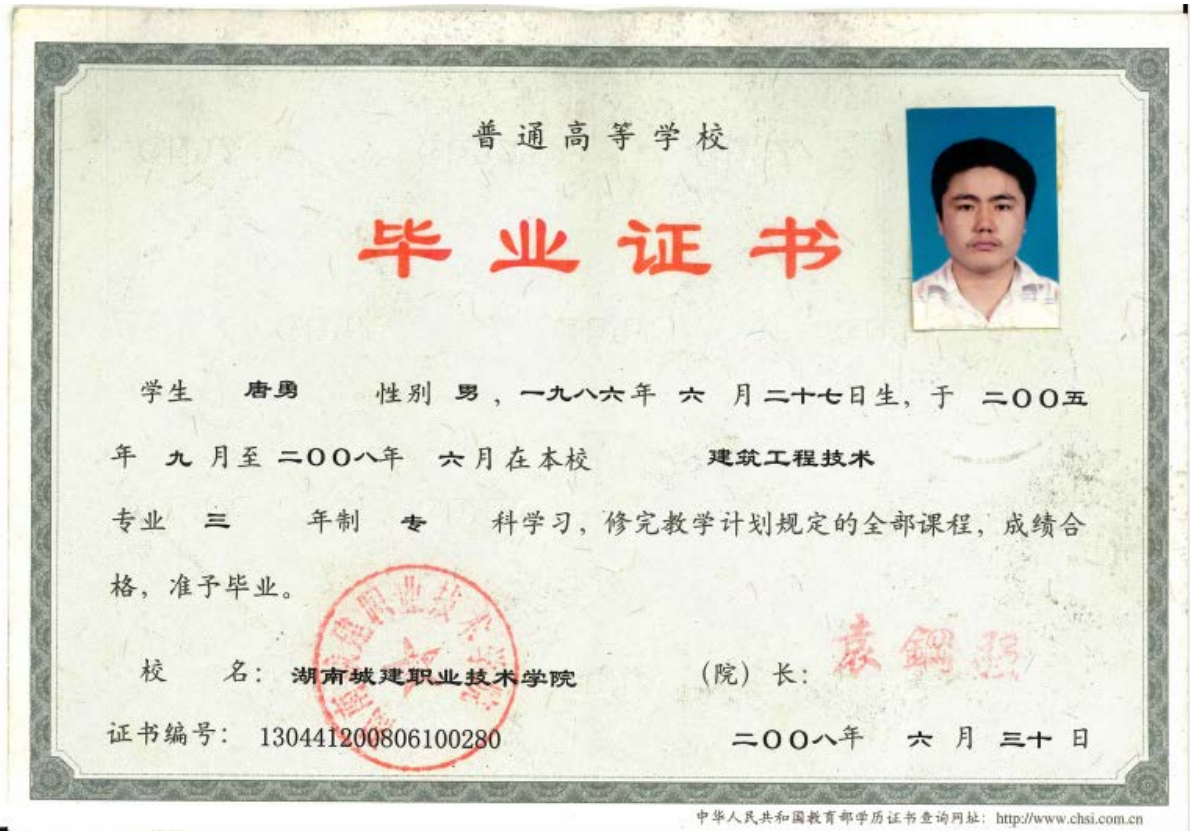 普通高等学校
毕业证书
学生 唐勇 性别 男，一九八六年 六 月二十七日生，于 二〇〇五
年 九 月至 二〇〇八年 六月在本校 建筑工程技术
专业 三 年制 专 科学习，修完教学计划规定的全部课程，成绩合
格，准予毕业。
湖南城建职业技术学院
校 名：湖南城建职业技术学院 （院）长：袁鋼强
证书编号：130441200806100280 二〇〇八年 六 月 三十 日
中华人民共和国教育部学历证书查询网址：http://www.chsi.com.cn